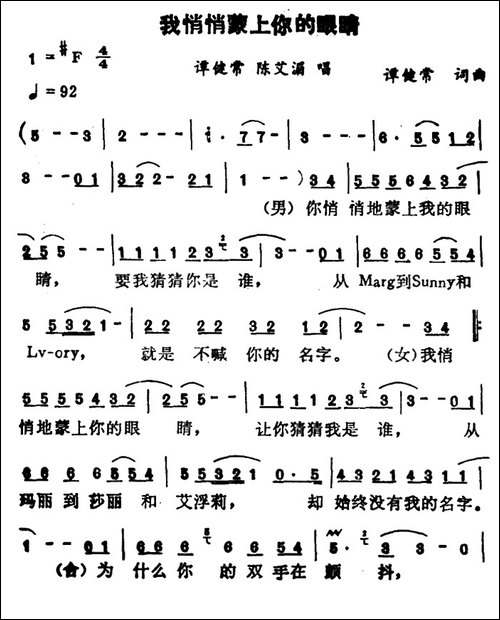 我悄悄蒙上你的眼睛
1 = #F 4/4
谭健常 陈艾湄 唱 谭健常 词曲
♩= 92
( 5 - - 3 | 2 - - - | 1 · 7 7 - | 3 - - - | 6 · 5 5 1 2 |
3 - - 0 1 | 3 2 2 - 2 1 | 1 - - ) 3 4 | 5 5 5 6 4 3 2 |
(男) 你悄 悄地蒙上我的眼
2 5 5 - - | 1 1 1 1 2 3 3 | 3 - - 0 1 | 6 6 6 6 5 5 4 |
睛, 要我猜猜你是 谁, 从 Marg到Sunny和
5 5 3 2 1 - | 2 2 2 2 3 2 1 2 | 2 - - 3 4 :
Lv-ory, 就是 不喊 你的 名字。 (女)我悄
5 5 5 5 4 5 4 3 2 | 2 5 5 - - | 1 1 1 1 2 3 3 | 3 - - 0 1 |
悄地蒙上你的眼 睛, 让你猜猜我是 谁, 从
6 6 6 6 5 5 4 | 5 5 3 2 1 0 · 5 | 4 3 2 1 4 3 1 1 |
玛丽 到 莎丽 和 艾浮莉, 却 始终没有我的名字。
1 - - 0 1 | 6 6 6 6 6 5 4 | 5 · 3 3 - 0 |
(合) 为 什么 你 的 双手在 颤 抖,